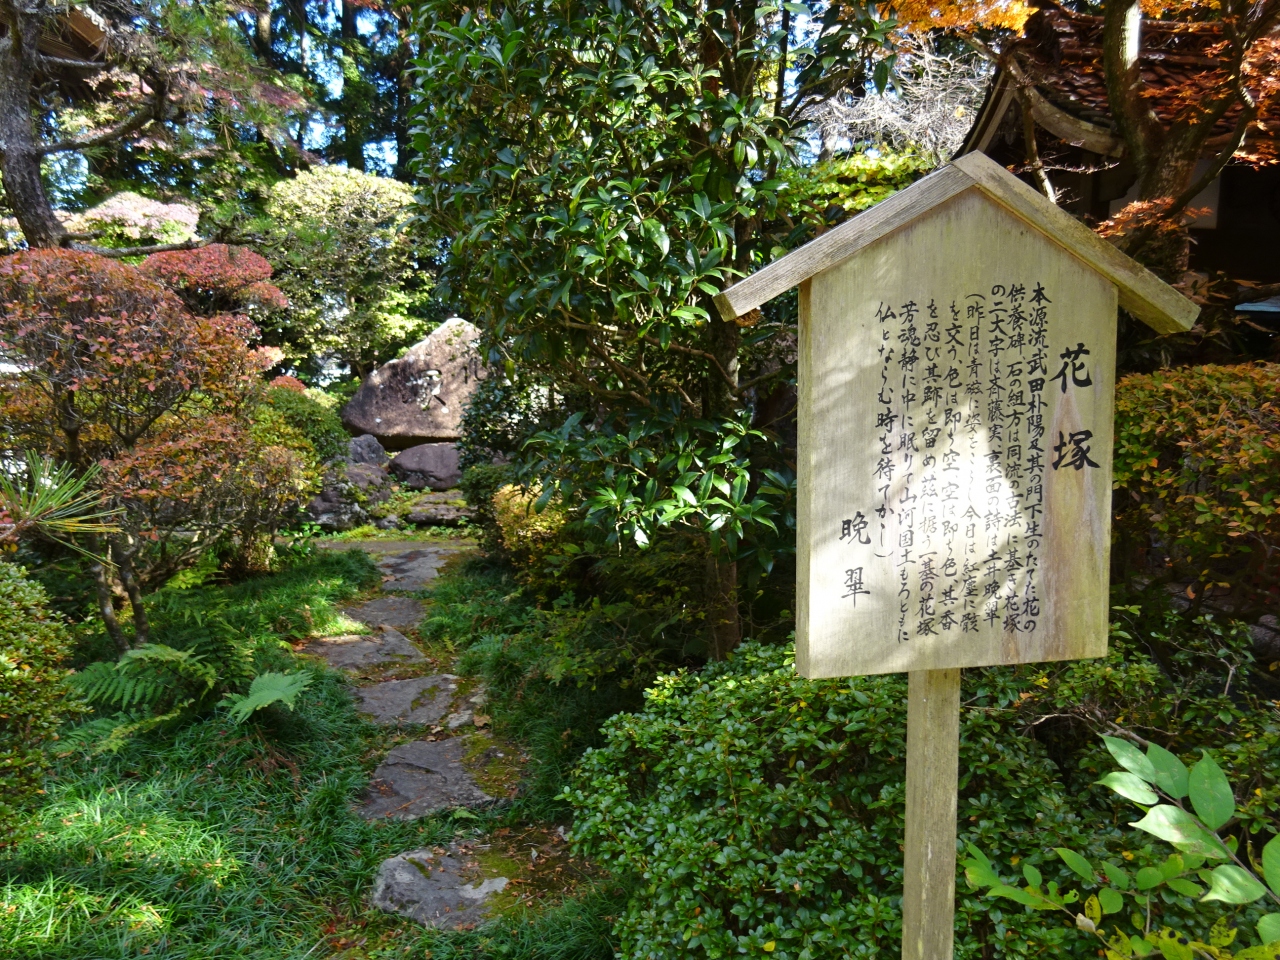 花塚
本源流武田朴陽及其の門下生のたてた花の
供養碑、石の組方は同流の方法に基き花塚
の二大字は斉藤実、裏面の詩は土井晩翠
(昨日は青磁に姿を 今日は紅塵に骸
を交う、色は即ち空、空は即ち色、其香
を忍び其跡を留め茲に據う一基の花塚
芳魂静に中に眠りて山河国土もろともに
仏とならむ時を待てかし)
晩翠
花